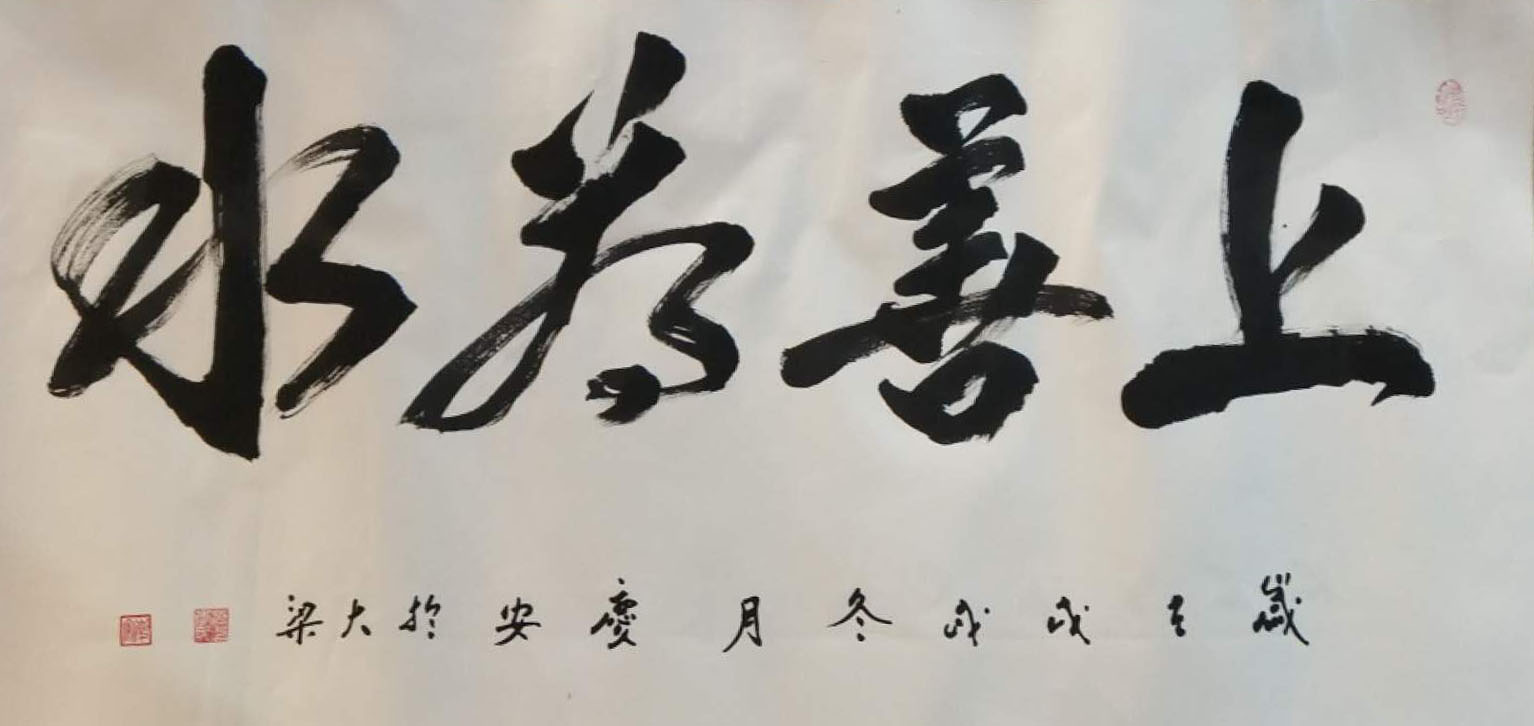 上善若水
歲在戊戌冬月慶安於大梁